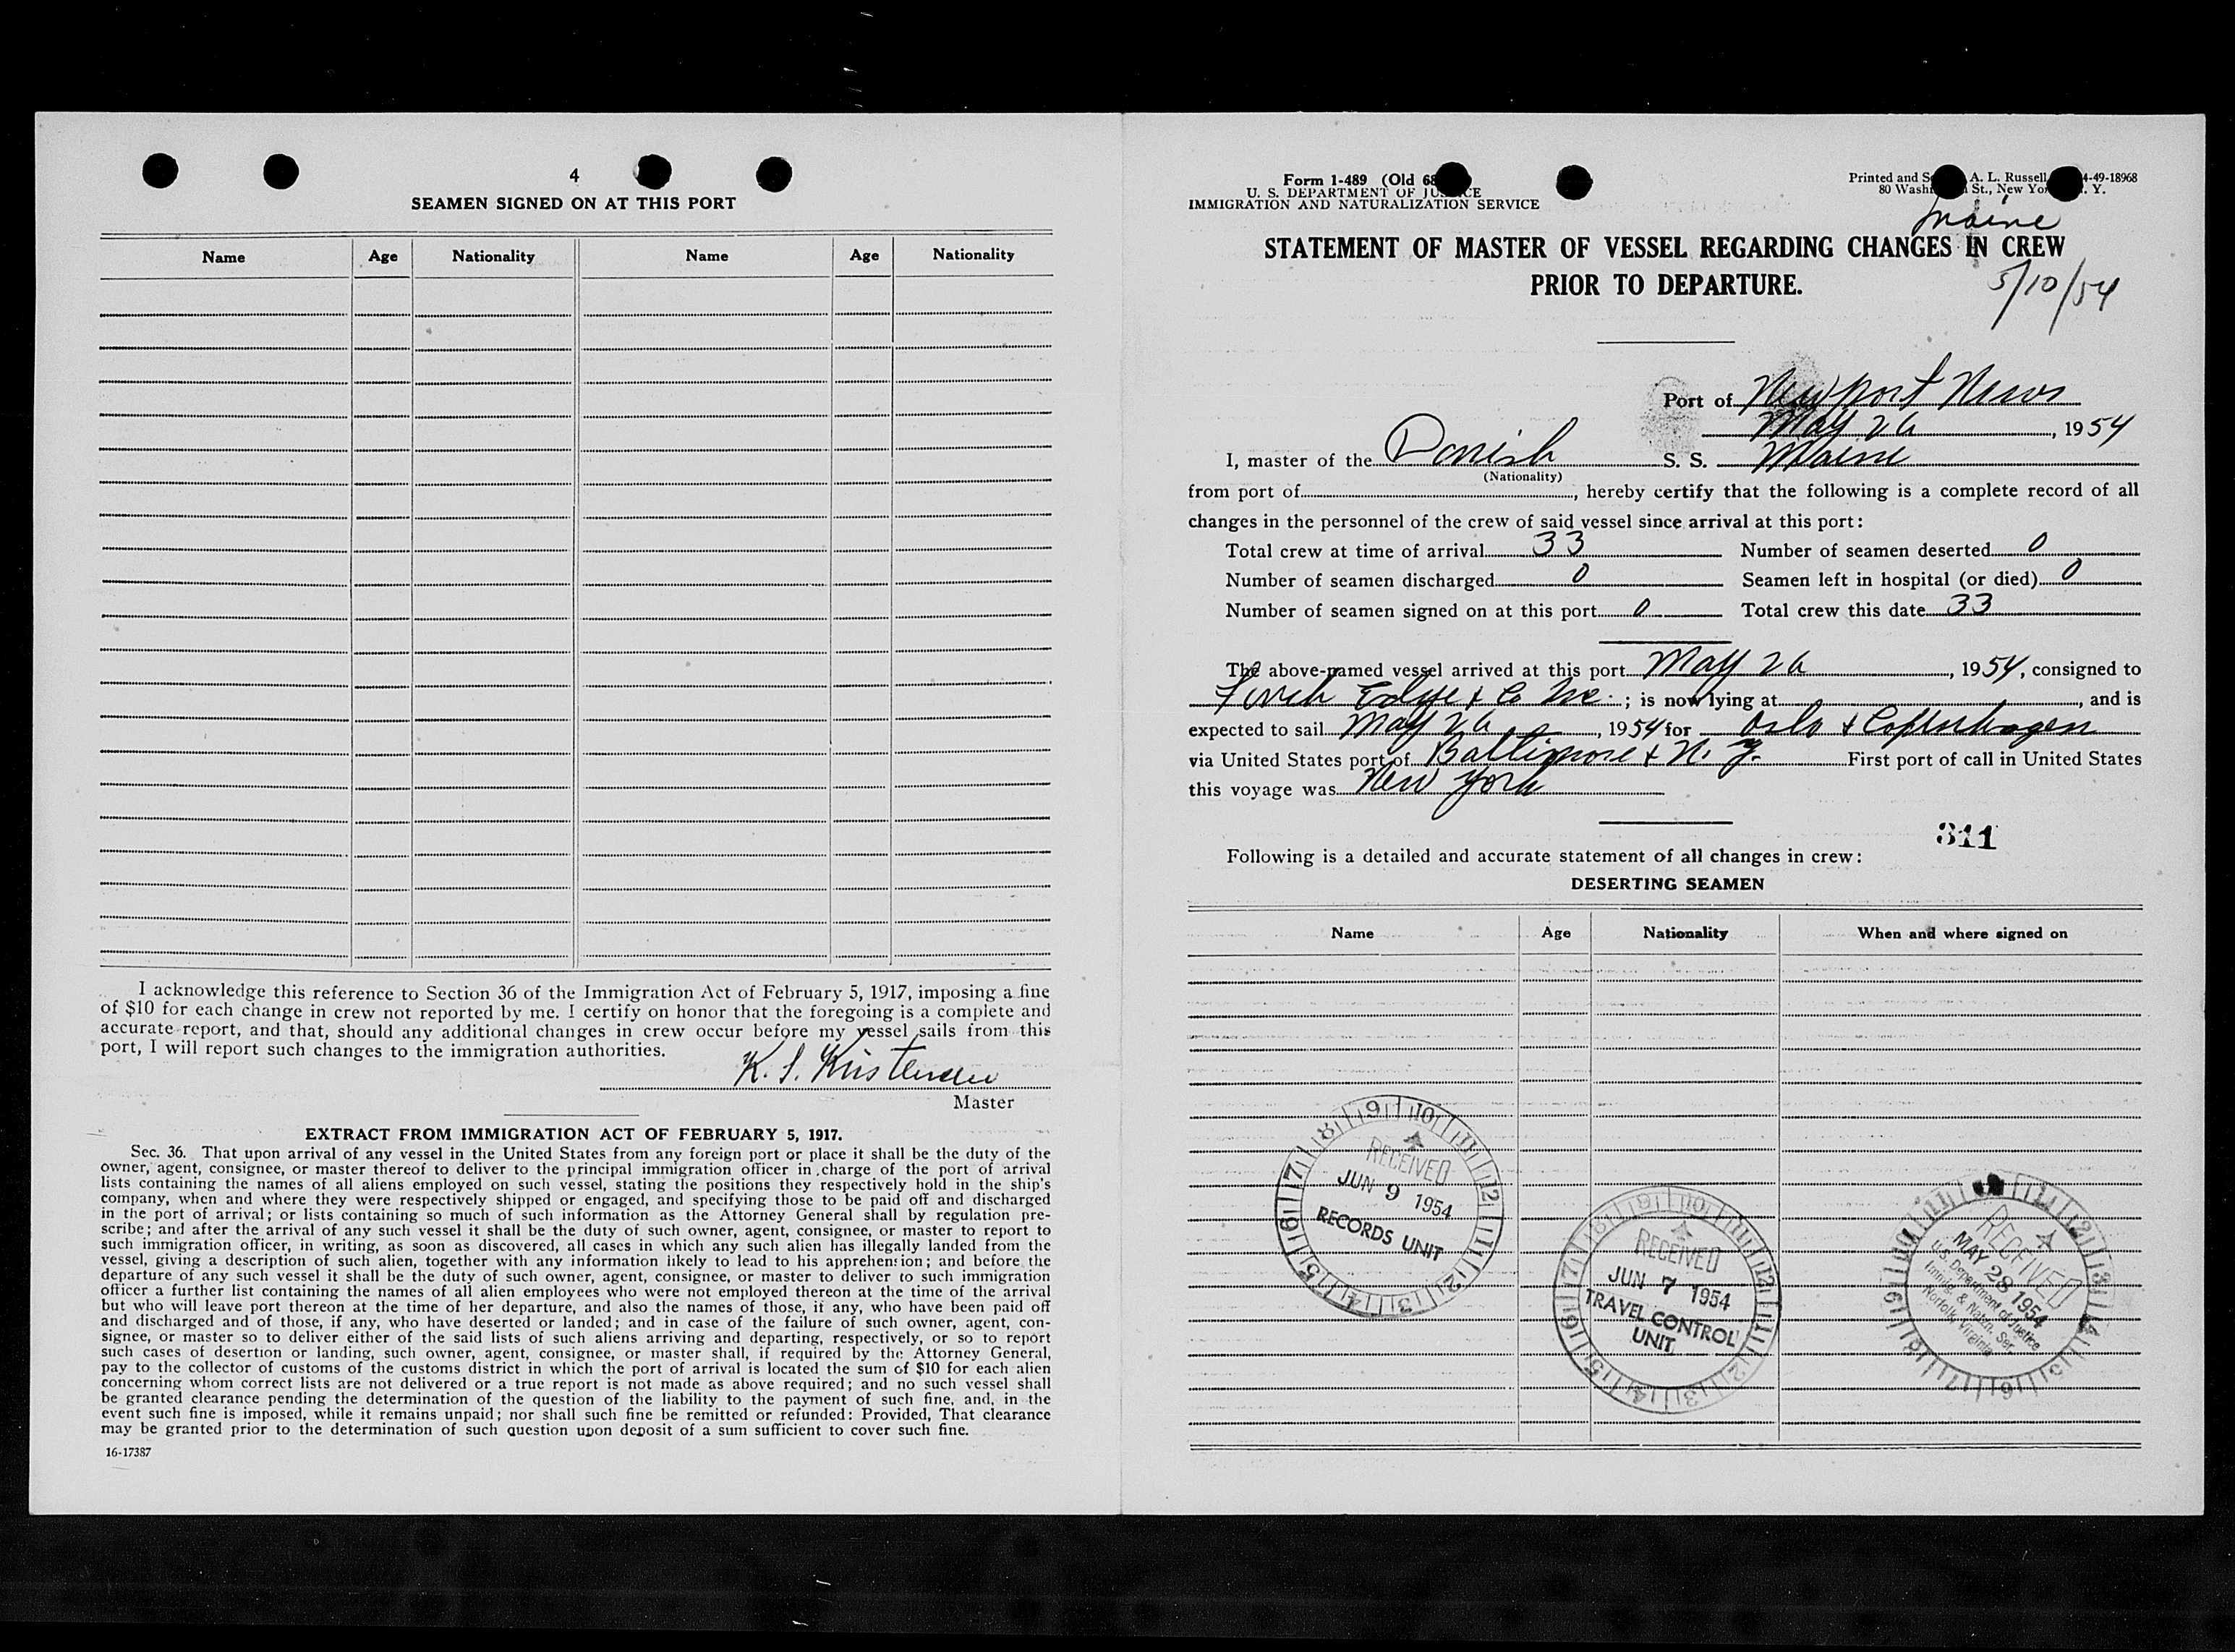 4
SEAMEN SIGNED ON AT THIS PORT
Name Age Nationality Name Age Nationality
I acknowledge this reference to Section 36 of the Immigration Act of February 5, 1917, imposing a fine
of $10 for each change in crew not reported by me. I certify on honor that the foregoing is a complete and
accurate report, and that, should any additional changes in crew occur before my vessel sails from this
port, I will report such changes to the immigration authorities.
K. S. Kristensen
Master
EXTRACT FROM IMMIGRATION ACT OF FEBRUARY 5, 1917.
Sec. 36. That upon arrival of any vessel in the United States from any foreign port or place it shall be the duty of the
owner, agent, consignee, or master thereof to deliver to the principal immigration officer in charge of the port of arrival
lists containing the names of all aliens employed on such vessel, stating the positions they respectively hold in the ship's
company, when and where they were respectively shipped or engaged, and specifying those to be paid off and discharged
in the port of arrival; or lists containing so much of such information as the Attorney General shall by regulation pre-
scribe; and after the arrival of any such vessel it shall be the duty of such owner, agent, consignee, or master to report to
such immigration officer, in writing, as soon as discovered, all cases in which any such alien has illegally landed from the
vessel, giving a description of such alien, together with any information likely to lead to his apprehension; and before the
departure of any such vessel it shall be the duty of such owner, agent, consignee, or master to deliver to such immigration
officer a further list containing the names of all alien employees who were not employed thereon at the time of the arrival
but who will leave port thereon at the time of her departure, and also the names of those, if any, who have been paid off
and discharged and of those, if any, who have deserted or landed; and in case of the failure of such owner, agent, con-
signee, or master so to deliver either of the said lists of such aliens arriving and departing, respectively, or so to report
such cases of desertion or landing, such owner, agent, consignee, or master shall, if required by the Attorney General,
pay to the collector of customs of the customs district in which the port of arrival is located the sum of $10 for each alien
concerning whom correct lists are not delivered or a true report is not made as above required; and no such vessel shall
be granted clearance pending the determination of the question of the liability to the payment of such fine, and, in the
event such fine is imposed, while it remains unpaid; nor shall such fine be remitted or refunded: Provided, That clearance
may be granted prior to the determination of such question upon deposit of a sum sufficient to cover such fine.
16-17387
Form 1-489 (Old 68
U. S. DEPARTMENT OF JUSTICE
IMMIGRATION AND NATURALIZATION SERVICE
Printed and S A. L. Russell 4-49-18968
80 Wash St., New Yo . Y.
Maine
STATEMENT OF MASTER OF VESSEL REGARDING CHANGES IN CREW
PRIOR TO DEPARTURE.
5/10/54
Port of Newport News
May 26, 1954
I, master of the Danish S. S. Maine
(Nationality)
from port of , hereby certify that the following is a complete record of all
changes in the personnel of the crew of said vessel since arrival at this port:
Total crew at time of arrival 33 Number of seamen deserted 0
Number of seamen discharged 0 Seamen left in hospital (or died) 0
Number of seamen signed on at this port 0 Total crew this date 33
The above-named vessel arrived at this port May 26, 1954, consigned to
Edye & Co Inc. ; is now lying at , and is
expected to sail May 26, 1954 for Oslo & Copenhagen
via United States port of Baltimore & N. Y. First port of call in United States
this voyage was New York
311
Following is a detailed and accurate statement of all changes in crew:
DESERTING SEAMEN
Name Age Nationality When and where signed on
RECEIVED
JUN 9 1954
RECORDS UNIT
RECEIVED
JUN 7 1954
TRAVEL CONTROL
UNIT
RECEIVED
MAY 28 1954
U.S. Department of Justice
Immig. & Natzn. Ser.
Norfolk, Virginia